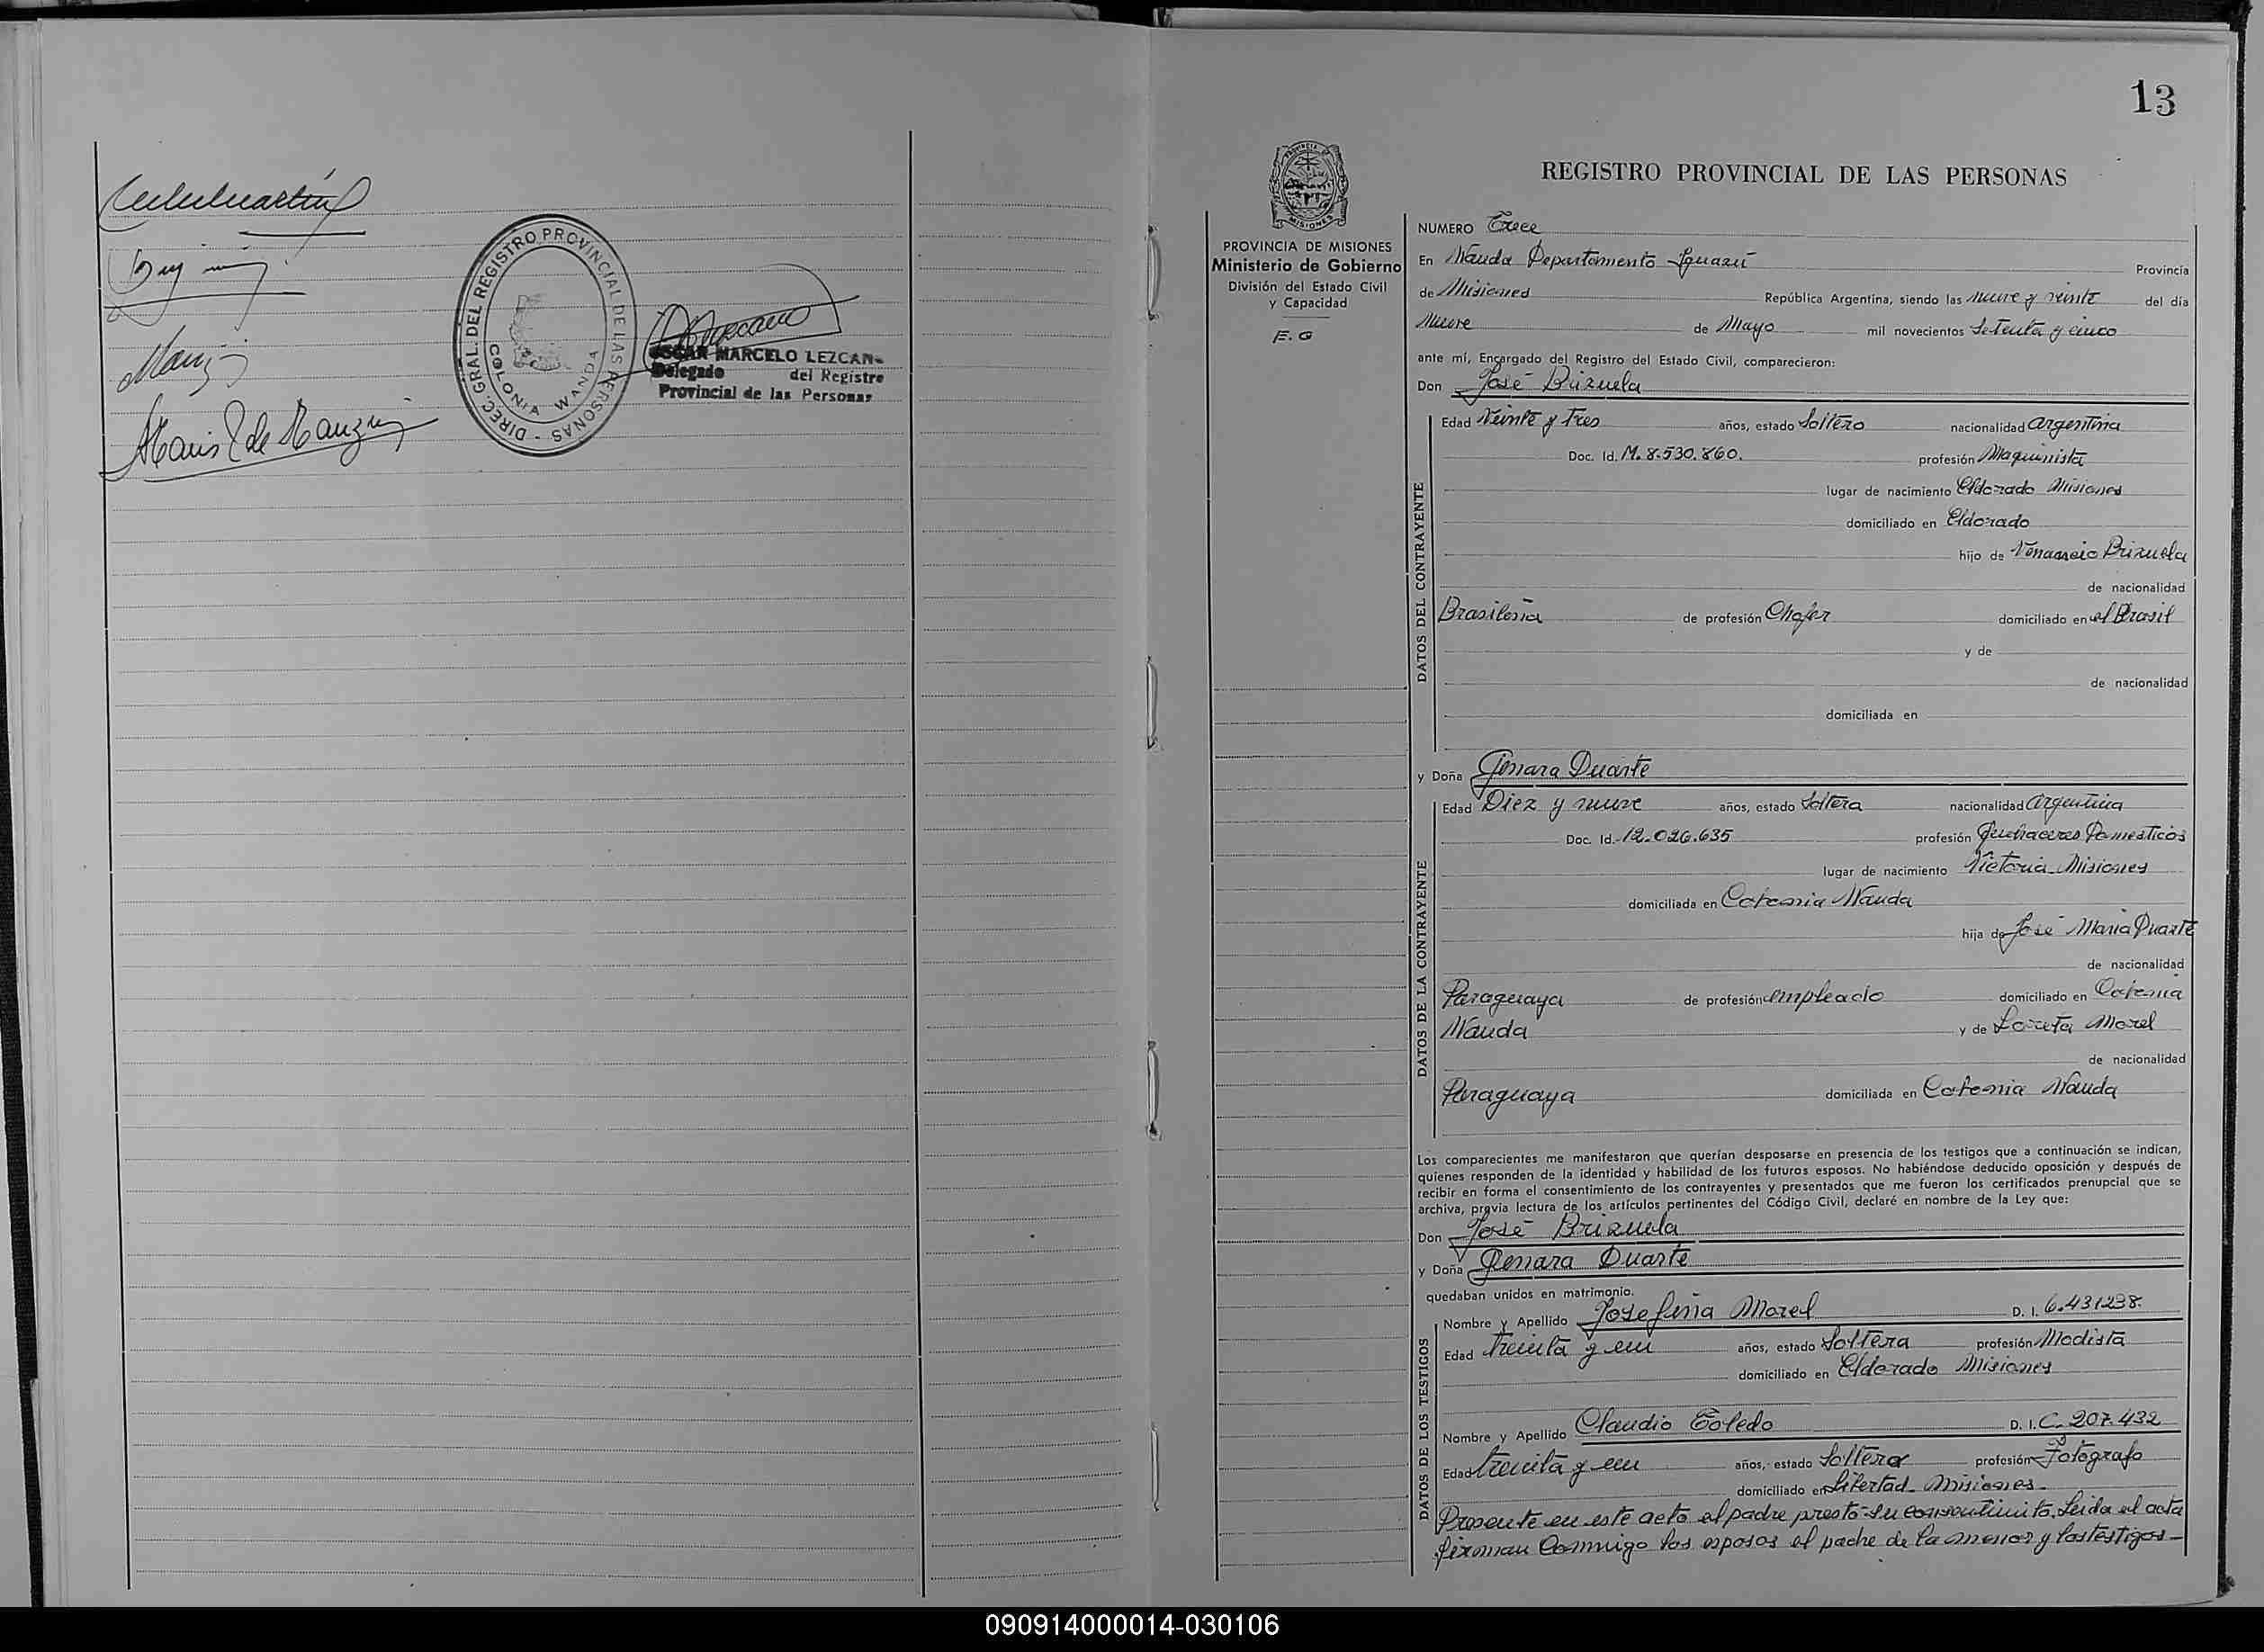 DIREC. GRAL. DEL REGISTRO PROVINCIAL DE LAS PERSONAS -
COLONIA WANDA
OSCAR MARCELO LEZCAN
Delegado del Registro
Provincial de las Personas
13
PROVINCIA DE MISIONES
Ministerio de Gobierno
División del Estado Civil
y Capacidad
E. G
REGISTRO PROVINCIAL DE LAS PERSONAS
NUMERO Trece
En Wanda Departamento Iguazú Provincia
de Misiones República Argentina, siendo las nueve y veinte del día
Nueve de Mayo mil novecientos Setenta y cinco
ante mí, Encargado del Registro del Estado Civil, comparecieron:
Don José Brizuela
DATOS DEL CONTRAYENTE
Edad Veinte y tres años, estado Soltero nacionalidad argentina
Doc. Id. M. 8.530.860. profesión Maquinista
lugar de nacimiento Eldorado Misiones
domiciliado en Eldorado
hijo de Venancio Brizuela
de nacionalidad
Brasileña de profesión Chofer domiciliado en el Brasil
y de
de nacionalidad
domiciliada en
y Doña Genara Duarte
DATOS DE LA CONTRAYENTE
Edad Diez y nueve años, estado Soltera nacionalidad argentina
Doc. Id. 12.026.635 profesión Quehaceres Domesticos
lugar de nacimiento Victoria Misiones
domiciliada en Colonia Wanda
hija de José Maria Duarte
de nacionalidad
Paraguaya de profesión empleado domiciliado en Colonia
Wanda y de Loreta Morel
de nacionalidad
Paraguaya domiciliada en Colonia Wanda
Los comparecientes me manifestaron que querían desposarse en presencia de los testigos que a continuación se indican,
quienes responden de la identidad y habilidad de los futuros esposos. No habiéndose deducido oposición y después de
recibir en forma el consentimiento de los contrayentes y presentados que me fueron los certificados prenupcial que se
archiva, previa lectura de los artículos pertinentes del Código Civil, declaré en nombre de la Ley que:
Don José Brizuela
y Doña Genara Duarte
quedaban unidos en matrimonio.
DATOS DE LOS TESTIGOS
Nombre y Apellido Josefina Morel D. I. 6.431238.
Edad treinta y un años, estado Soltera profesión Modista
domiciliado en Eldorado Misiones
Nombre y Apellido Claudio Toledo D. I. C. 207.432
Edad treinta y un años, estado Soltero profesión Fotógrafo
domiciliado en Libertad - Misiones -
Presente en este acto el padre prestó su consentimito. Leida el acta
firman conmigo los esposos el padre de la menor y los testigos -
090914000014-030106